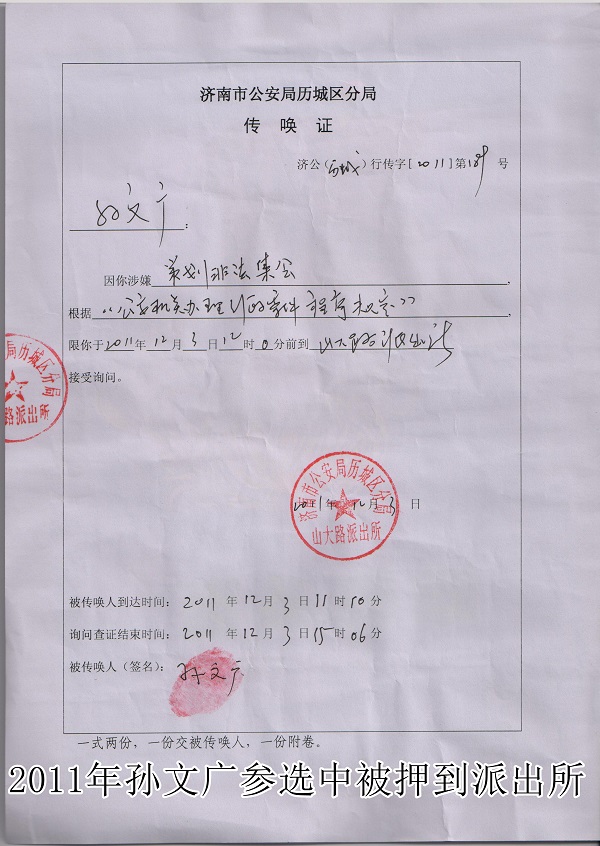 济南市公安局历城区分局
传 唤 证
济公（历城）行传字[2011]第189号
孙文广：
因你涉嫌 策划非法集会，
根据 《公安机关办理行政案件程序规定》，
限你于2011年12月3日12时0分前到 山大路派出所
接受询问。
局历城区分局
路派出所
济南市公安局历城区分局
2011年12月3日
山大路派出所
被传唤人到达时间：2011年12月3日11时10分
询问查证结束时间：2011年12月3日15时06分
被传唤人（签名）：孙文广
一式两份，一份交被传唤人，一份附卷。
2011年孙文广参选中被押到派出所